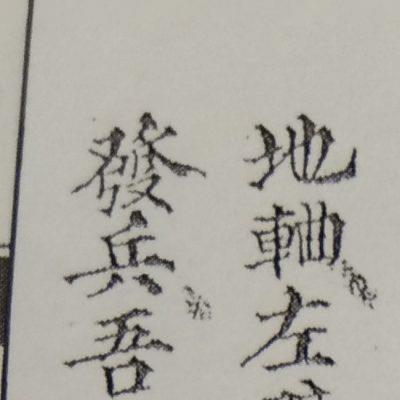 地軸左
發兵吾